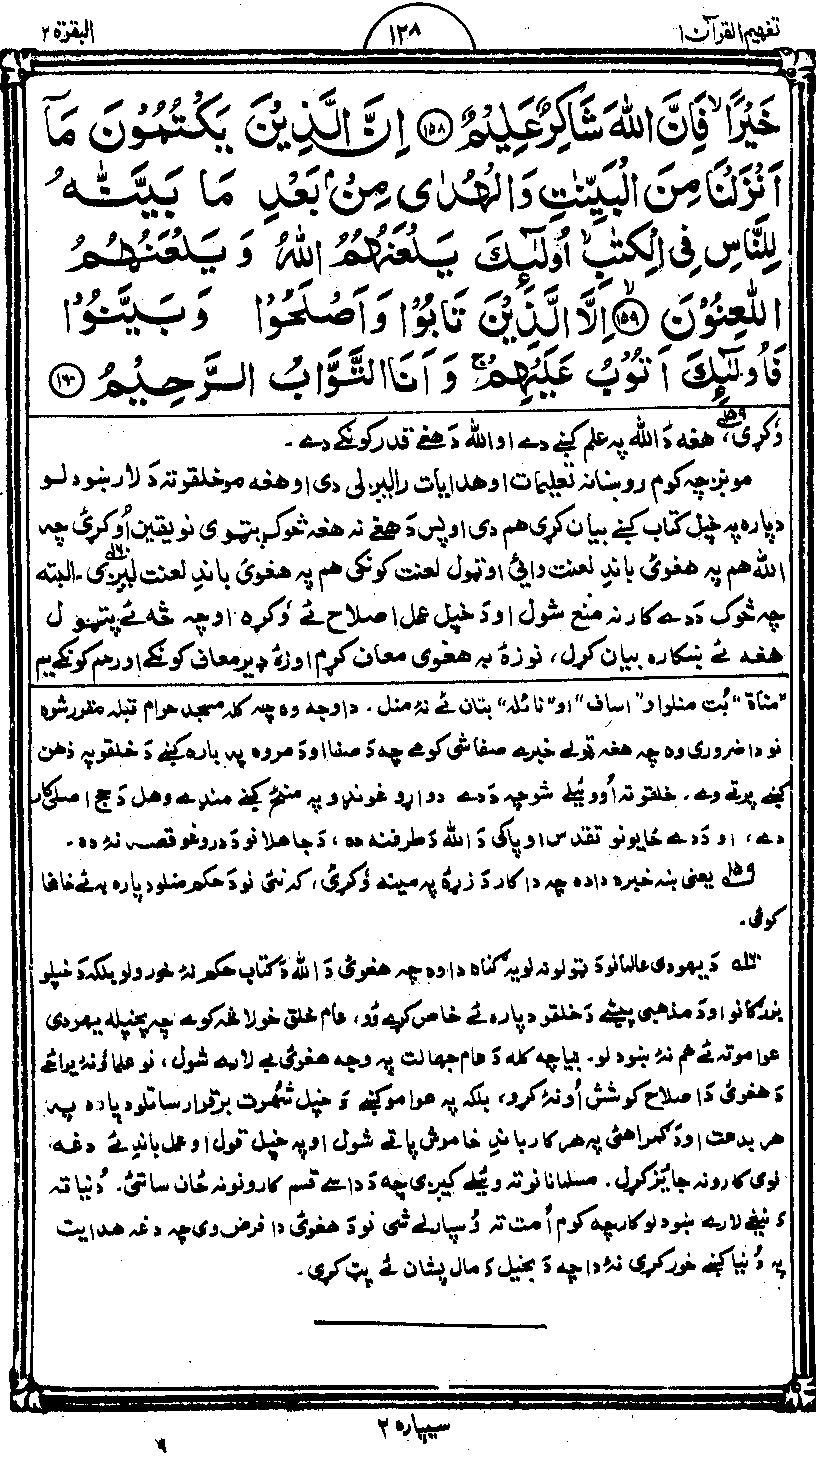 تفهیم القرآن ۱
۱۲۸
البقرة ۲
خَيْرًا ۙ فَإِنَّ اللّٰهَ شَاكِرٌ عَلِيْمٌ ۝۱۵۸ اِنَّ الَّذِيْنَ يَكْتُمُوْنَ مَآ
اَنْزَلْنَا مِنَ الْبَيِّنٰتِ وَالْهُدٰى مِنْۢ بَعْدِ مَا بَيَّنّٰهُ
لِلنَّاسِ فِى الْكِتٰبِ ۙ اُولٰٓئِكَ يَلْعَنُهُمُ اللّٰهُ وَيَلْعَنُهُمُ
اللّٰعِنُوْنَ ۙ ۝۱۵۹ اِلَّا الَّذِيْنَ تَابُوْا وَاَصْلَحُوْا وَبَيَّنُوْا
فَاُولٰٓئِكَ اَتُوْبُ عَلَيْهِمْ ۚ وَاَنَا التَّوَّابُ الرَّحِيْمُ ۝۱۶۰
وَکړی، ۱۵۹ هغه دَ الله په علم کښے دے او الله دَ هغے قدر کونکے دے۔
مونږ چه کوم روښانه تعلیمات او هدایات رالیږلی دی او هغه مو خلقو ته دَ لار ښودلو
دپاره په خپل کتاب کښے بیان کړی هم دی او پس دَ هغے نه هغه څوک پټوی نو یقین اُوکړئ چه
الله هم په هغوئ باندِ لعنت وائی او ټول لعنت کونکی هم په هغوئ باندِ لعنت لیږی ۱۶۰۔ البته
چه څوک دَ دے کار نه منع شول او دَ خپل عمل اصلاح ئے وَکړه او چه څه ئے پټول
هغه ئے ښکاره بیان کړل، نو زهٔ به هغوی معاف کړم او زهٔ ډیر معاف کونکے او رحم کونکے یم
”مناة“ بُت منلو او ”اساف“ او ”نائله“ بتان ئے نهٔ منل۔ دا وجه وه چه کله مسجد حرام قبله مقرر شوه
نو دا ضروری وه چه هغه ټولے خبرے صفا شی کومے چه دَ صفا او دَ مروه په باره کښے دَ خلقو په ذهن
کښے پرتے وے۔ خلقو ته اُووئیلے شو چه دَ دے دواړو غونډو په منځ کښے منډے وهل دَ حج اصلی کار
دے، او دَ دے ځایونو تقدس او پاکی دَ الله دَ طرفنه ده، دَ جاهلانو دَ دروغو قصه نهٔ ده۔
۱۵۹ یعنی ښه خبره دا ده چه دا کار دَ زړهٔ په مینه وَکړئ، که نئی نو دَ حکم منلو دپاره به ئے خامخا
کوئی۔
۱۶۰ دَ یهودی عالمانو دَ ټولو نه لویه گناه دا وه چه هغوئ دَ الله دَ کتاب حکم نهٔ خورولو بلکه دَ خپلو
بزرگانو او دَ مذهبی پیشے دَ خلقو دپاره ئے خاص کړے وُو، عام خلق خو لا څه کوے چه پخپله یهودی
عوامو ته ئے هم نهٔ ښودلو۔ بیا چه کله دَ عام جهالت په وجه هغوئ بے لارے شول، نو علماؤ نهٔ یواځے
دَ هغوئ دَ اصلاح کوشش اُونهٔ کړو، بلکه په عوامو کښے دَ خپل شهرت برقرار ساتلو دپاره به
هر بدعت او دَ گمراهئ په هر کار باندِ خاموش پاتے شول او په خپل قول او عمل باندِ ئے دغه
نوی کارونه جائز کړل۔ مسلمانانو ته وئیلے کیږی چه دَ داسے قسم کارونو نه ځان ساتئ۔ دُنیا ته
دَ نیغے لارے ښودلو کار چه کوم اُمت ته وُسپارلے شی نو دَ هغوئ دا فرض وی چه دغه هدایت
په دُنیا کښے خور کړی نهٔ دا چه دَ بخیل دَ مال پشان ئے پټ کړی۔
سیپاره ۲